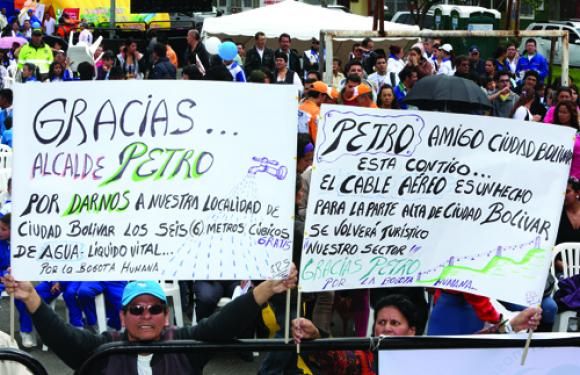 GRACIAS...
ALCALDE PETRO
POR DARNOS A NUESTRA LOCALIDAD DE
CIUDAD BOLIVAR LOS SEIS (6) METROS CÚBICOS
DE AGUA - LIQUIDO VITAL... GRATIS
POR LA BOGOTA HUMANA
PETRO AMIGO CIUDAD BOLIVAR
ESTA CONTIGO...
EL CABLE AÉREO ES UN HECHO
PARA LA PARTE ALTA DE CIUDAD BOLIVAR
SE VOLVERÁ TURÍSTICO
NUESTRO SECTOR!!!
GRACIAS PETRO
POR LA BOGOTA HUMANA